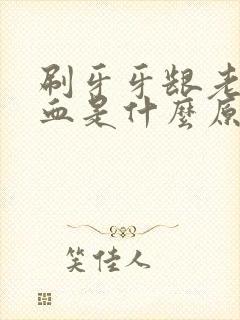 刷牙牙龈老
血是什麼原
笑佳人